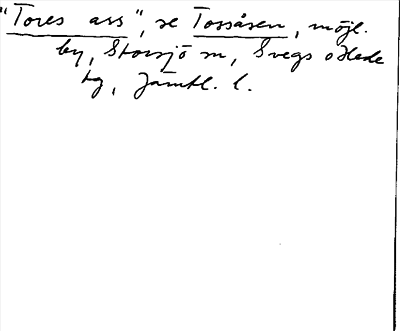 "Tores ass", se Tossåsen, möjl.
by, Storsjö sn, Svegs o Hede
tg, Jämtl. l.